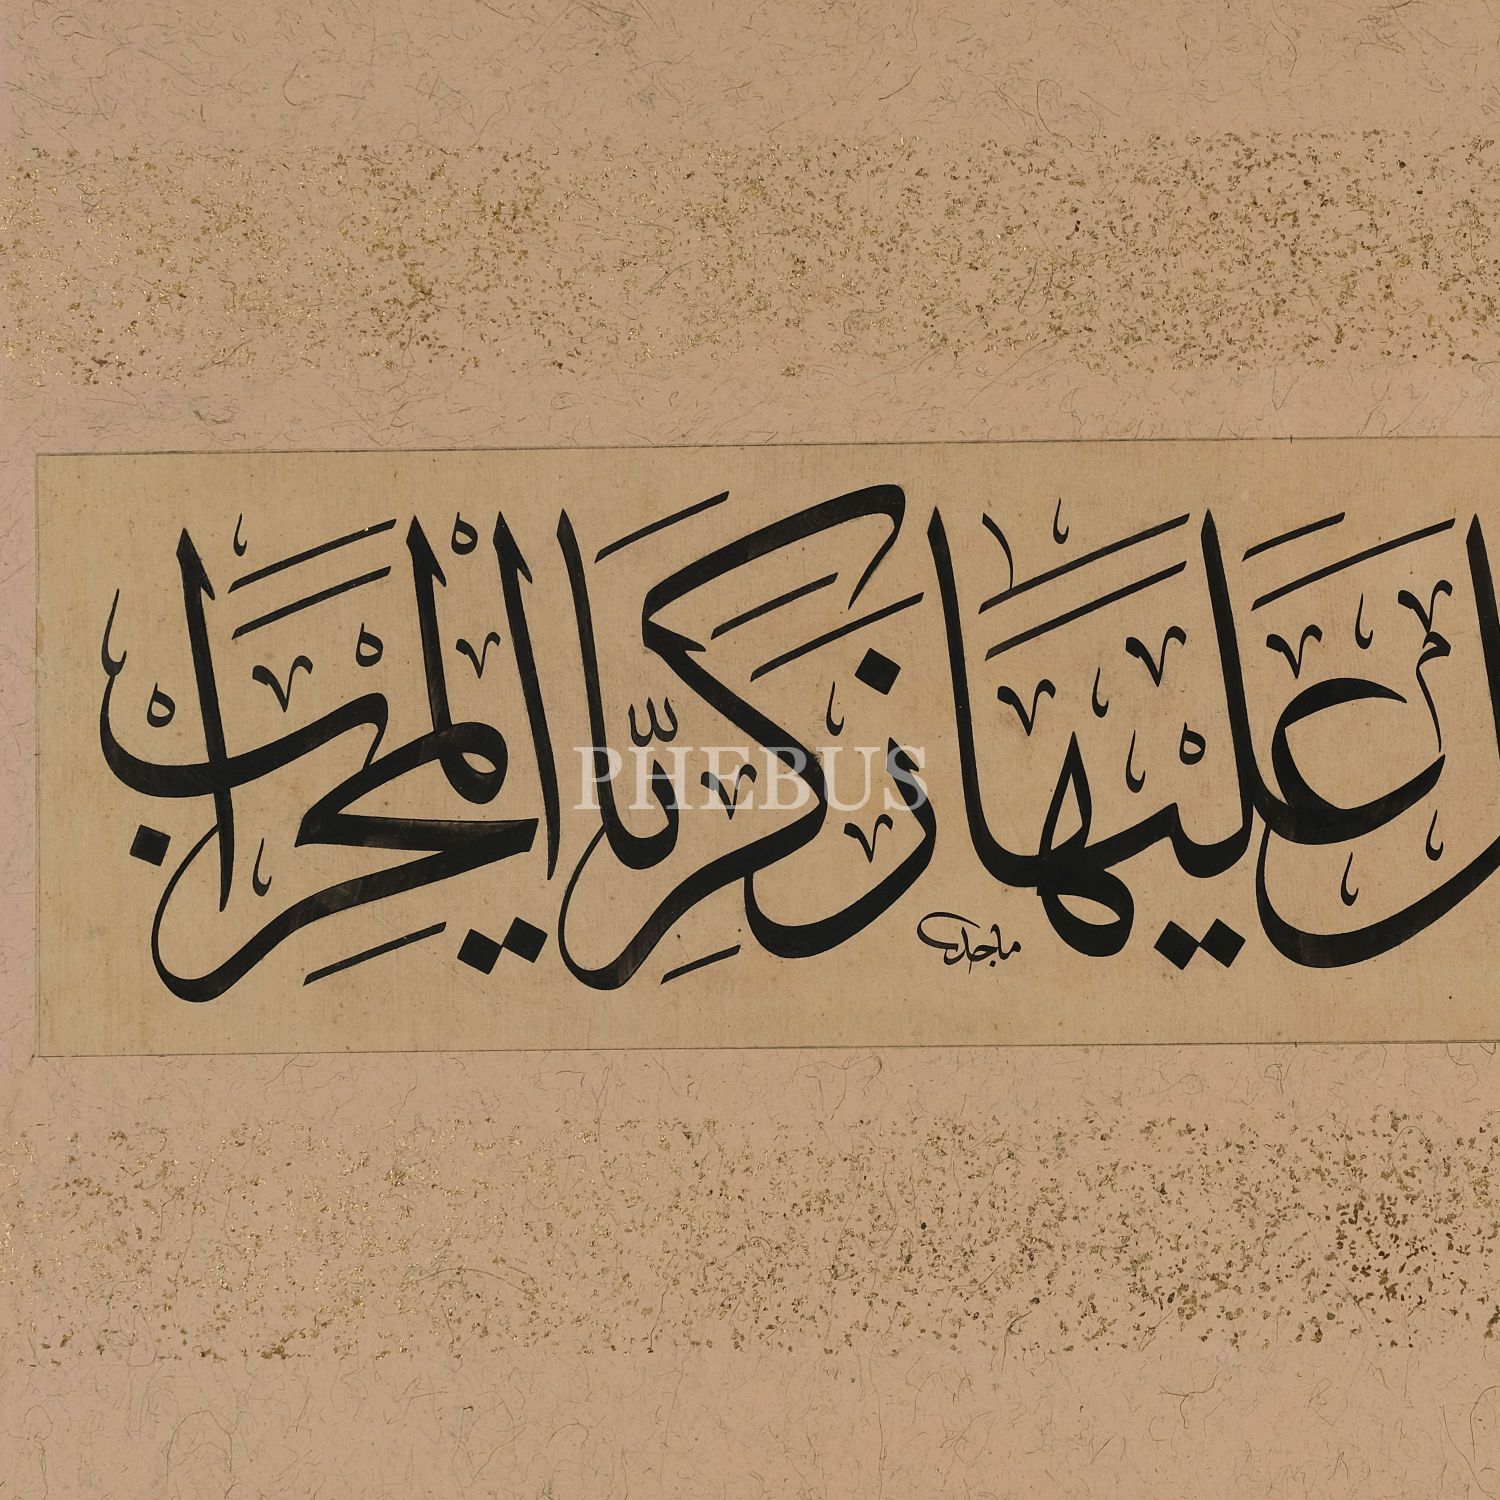 ل عَلَيْهَا زَكَرِيَّا الْمِحْرَابَ
ماجد
PHEBUS